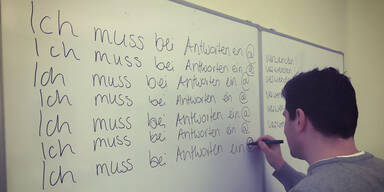 Ich muss bei Antworten ein @ verwenden
Ich muss bei Antworten ein @ verwenden
Ich muss bei Antworten ein @ verwenden
Ich muss bei Antworten ein @
Ich muss bei Antworten ein @
Ich muss bei Antworten ein @
Ich muss bei Antworten ein @